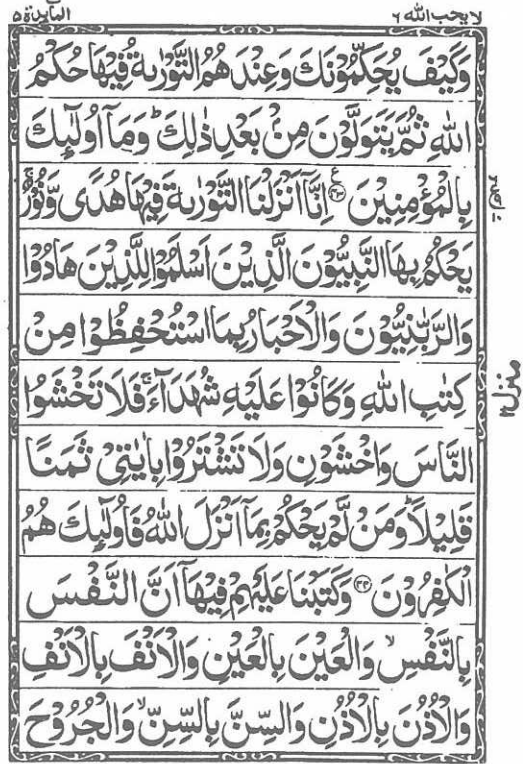 لا يحب الله ٦
المآئدة ٥
وَكَيْفَ يُحَكِّمُوْنَكَ وَعِنْدَ هُمُ التَّوْرٰىةُ فِيْهَا حُكْمُ
اللهِ ثُمَّ يَتَوَلَّوْنَ مِنْۢ بَعْدِ ذٰلِكَ ؕ وَمَاۤ اُولٰٓئِكَ
بِالْمُؤْمِنِيْنَ ﴿۴۳﴾ اِنَّاۤ اَنْزَلْنَا التَّوْرٰىةَ فِيْهَا هُدًى وَّنُوْرٌ ۚ
يَحْكُمُ بِهَا النَّبِيُّوْنَ الَّذِيْنَ اَسْلَمُوْا لِلَّذِيْنَ هَادُوْا
وَالرَّبّٰنِيُّوْنَ وَالْاَحْبَارُ بِمَا اسْتُحْفِظُوْا مِنْ
كِتٰبِ اللهِ وَكَانُوْا عَلَيْهِ شُهَدَآءَ ۚ فَلَا تَخْشَوُا
النَّاسَ وَاخْشَوْنِ وَلَا تَشْتَرُوْا بِاٰيٰتِيْ ثَمَنًا
قَلِيْلًا ؕ وَمَنْ لَّمْ يَحْكُمْ بِمَاۤ اَنْزَلَ اللهُ فَاُولٰٓئِكَ هُمُ
الْكٰفِرُوْنَ ﴿۴۴﴾ وَكَتَبْنَا عَلَيْهِمْ فِيْهَاۤ اَنَّ النَّفْسَ
بِالنَّفْسِ ۙ وَالْعَيْنَ بِالْعَيْنِ وَالْاَنْفَ بِالْاَنْفِ
وَالْاُذُنَ بِالْاُذُنِ وَالسِّنَّ بِالسِّنِّ ۙ وَالْجُرُوْحَ
منزل ٢